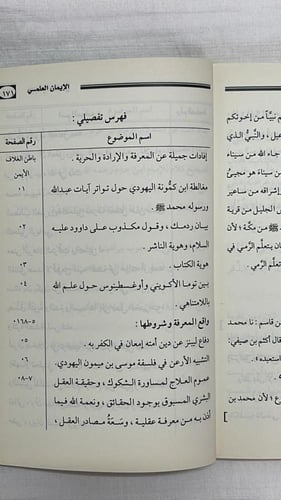 الإيمان العلمـي
١٧١
فهرس تفصيلي :
اسم الموضوع
رقم الصفحة
إفادات جميلة عن المعرفة والإرادة والحرية .
باطن الغلاف
الأيمن
مغالطة ابن كمُّونة اليهودي حول تواتر آيات عبدالله
٠١
ورسوله محمد ﷺ .
بيان ردمك ، وقول مكذوب على داود عليه
٠٢
السلام، وهوية الناشر .
هوية الكتاب .
٠٣
بين توما الأكويني وأوغسطينوس حول علـم الله
٠٤
باللامتناهي .
واقع المعرفة وشروطها :
٥-١٦٨
دفاع ليبنز عن دين أمته إمعان في الكفر به .
٠٥
التشبيه الأرعن في فلسفة موسى بن ميمون اليهودي.
٠٦
عموم العلاج لمساورة الشكوك ، وحقيقة العقل
٠٧-٨
البشري المسبوق بوجود الحقائق ، ونعمة الله فيما
أذن به مـن معرفـة عقلية ، وسَـعَةُ مصـادر العقل ،
نبيّاً من إخوتكم
عيل ، والنَّبيُّ الذي
جاء الله من سيناء
من سيناء هو مجيئ
إشراقه من ساعير
الجليل من قرية
من مكّة ؛ لأن
ان يتعلّم الرَّمي في
يتعلّم الرَّمي .
بن قاسم : نا محمد
قال أكثم بن صيفي:
استعيده» .
ع ؛ لأن محمد بن